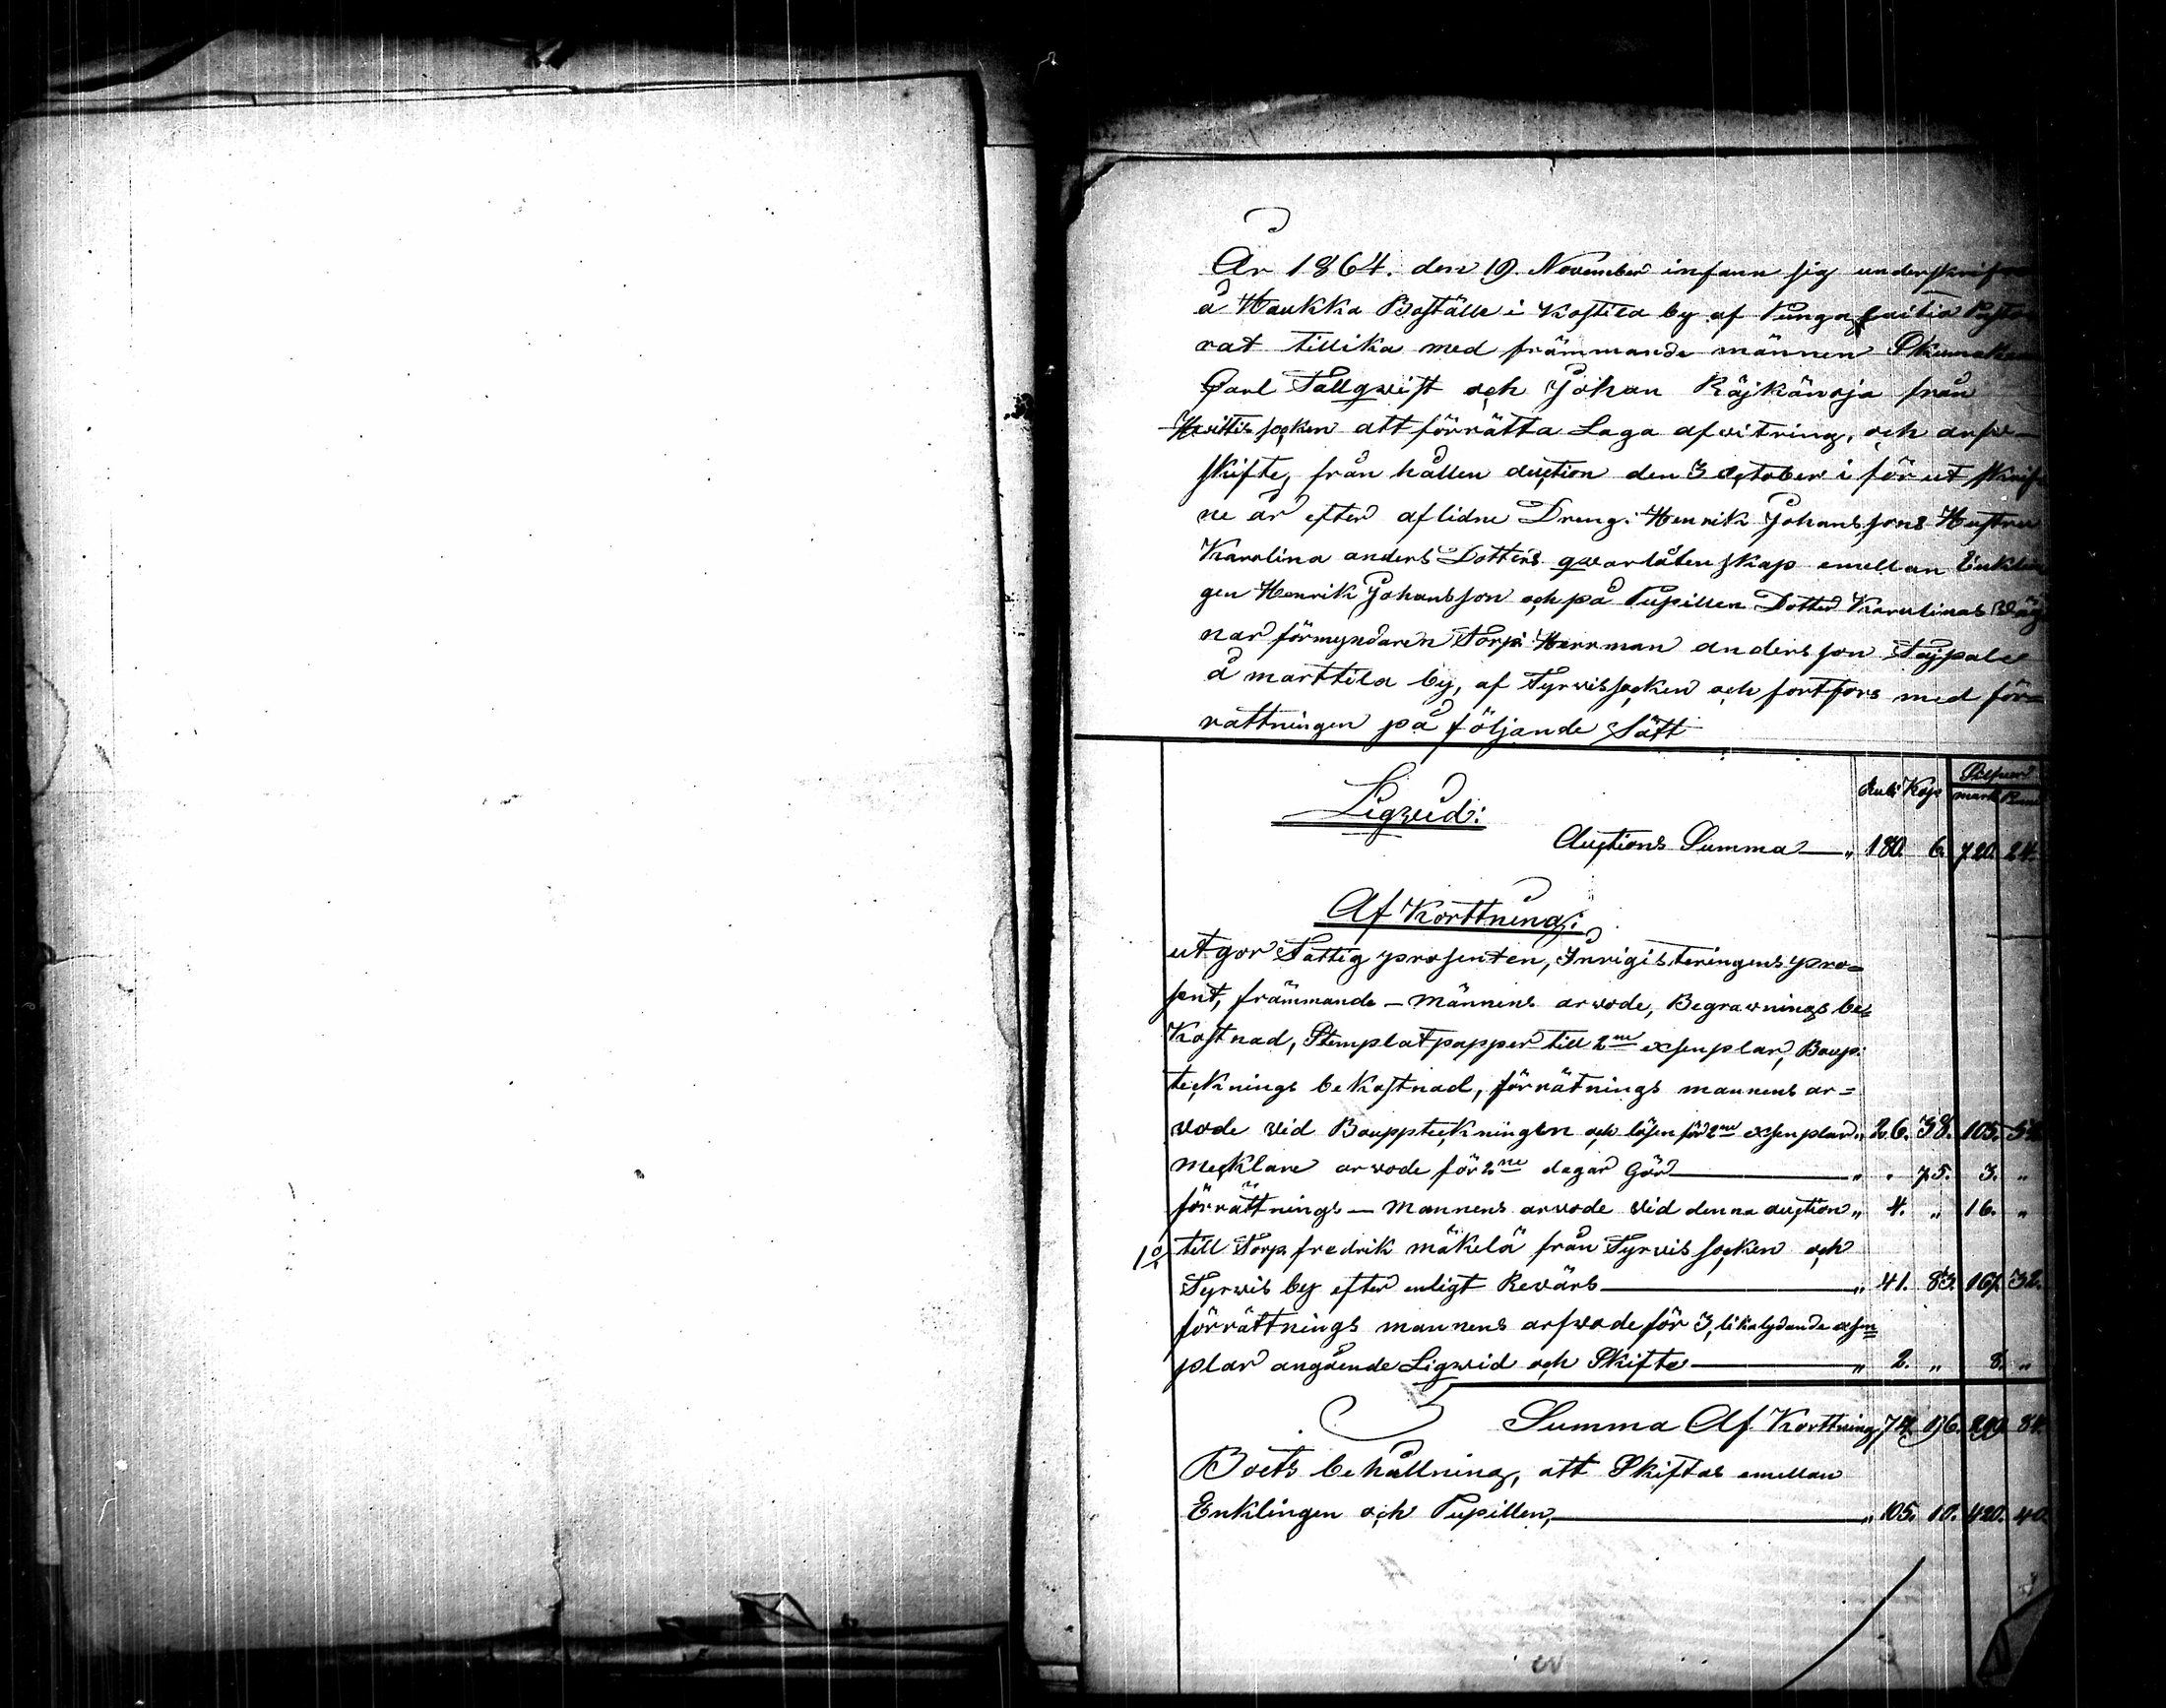 År 1864. den 19. November infann sig underskrifne
å Haukka Boställe i Kostila by af Punga Pasto
rat tillika med främmande männen Skomakare
Carl Tallgwist och Johan Räjkänoja från
Hvittis socken att förrätta Laga afvitring, och arfs-
skifte, från hållen auction den 3 October i för ut skrif
ne år efter aflidne Dreng: Henrik Johanssons Hustru
Karolina anders Dotters qwarlåtenskap emellan Enklin
gen Henrik Johansson och på Pupillen Dotter Karolinas väg
nar förmyndaren Torp: Herrman andersson Tajpale
å marttila by, af Tyrvis socken och fortfors med för-
rättningen på följande Sätt
Rub: Kop Silfwer
mark Penni
Ligwid:
Auctions Summa — „ 180. 6. 720. 24.
Af Korttning:
ut gör Fattig prosenten, Inrigisteringens pro=
sent, främmande - männens arvode, Begrawnings be=
Kostnad, Stemplat papper till 2ne exsenplar, Boup:
tecknings bekostnad, förrätnings mannens ar=
vode vid Bouppteckningen och lösen för 2ne exsenplar „ 26. 38. 105. 52.
Mecklare arvode för 2ne dagar Gör — „ „ 75. 3. „
förrättnings - Mannens arvode vid denna auction „ 4. „ 16. „
1o till Torp. fredrik mäkelä från Tyrvis socken och
Tyrvis by efter enligt Revärs — „ 41. 83. 167. 32.
förrättnings mannens arfvode för 3, likalydande exsen=
plar angående Ligwid och Skifte — „ 2. „ 8. „
Summa Af Korttning 74. 96. 299. 84.
Boets behållning, att Skiftas emellan
Enklingen och Pupillen, — „ 105. 10. 420. 40.